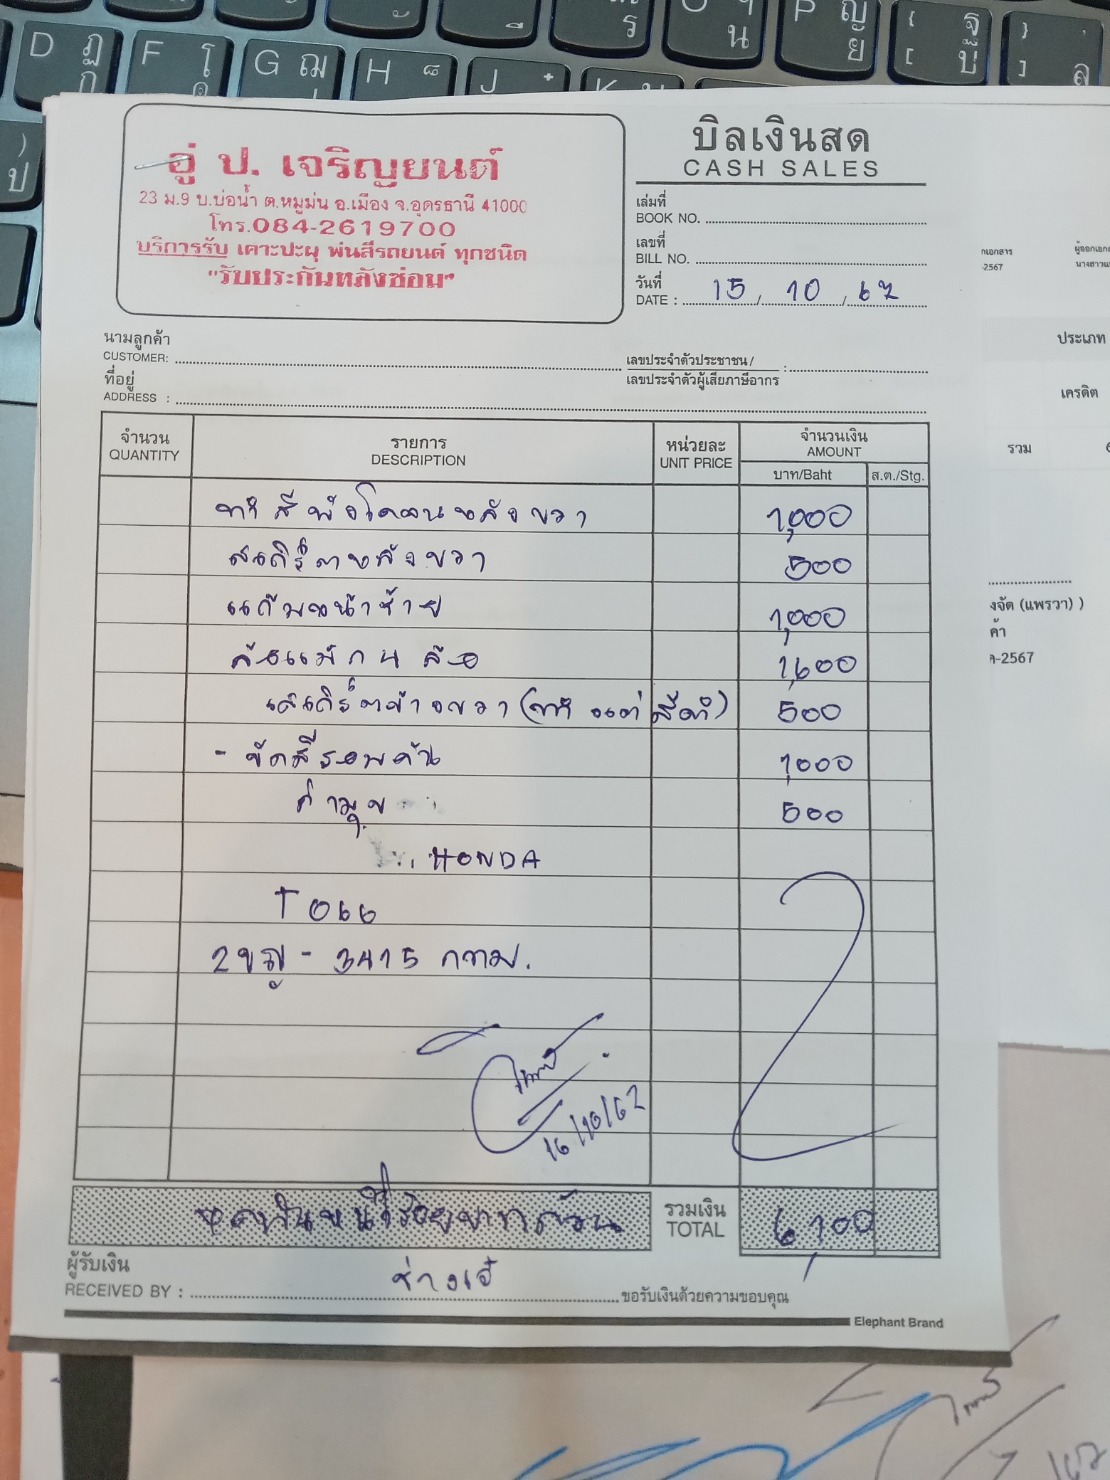 D ฏ ก
F โ ด
G ฌ
H ็
J ่
K
ร
น
P ญ ย
{ ฐ [ บ
} ] ล
) ป
อู่ ป. เจริญยนต์
23 ม.9 บ.บ่อน้ำ ต.หมูม่น อ.เมือง จ.อุดรธานี 41000
โทร.084-2619700
บริการรับ เคาะปะผุ พ่นสีรถยนต์ ทุกชนิด
"รับประกันหลังซ่อม"
บิลเงินสด
CASH SALES
เล่มที่
BOOK NO.
เลขที่
BILL NO.
วันที่
DATE : 15 / 10 / 67
นามลูกค้า
CUSTOMER:
เลขประจำตัวประชาชน/
เลขประจำตัวผู้เสียภาษีอากร :
ที่อยู่
ADDRESS :
จำนวน QUANTITY รายการ DESCRIPTION หน่วยละ UNIT PRICE จำนวนเงิน AMOUNT
บาท/Baht ส.ต./Stg.
ทำสีบังโคลนหลังขวา 1,000
สเกิร์ตหลังขวา 500
แก้มหน้าซ้าย 1,000
ล้อแม็ก 4 ล้อ 1,600
สเกิร์ตข้างขวา (ทำแต่สีดำ) 500
- ขัดสีรอบคัน 1,000
ค่ามุข 500
HONDA
T066
2ขญ - 3415 กทม.
16/10/67
หกพันหนึ่งร้อยบาทถ้วน
รวมเงิน
TOTAL 6,100
ผู้รับเงิน
RECEIVED BY : ช่างเอ๋
ขอรับเงินด้วยความขอบคุณ
Elephant Brand
-2567
ประเภท
เครดิต
รวม
งจัด (แพรวา) )
ค้า
-2567